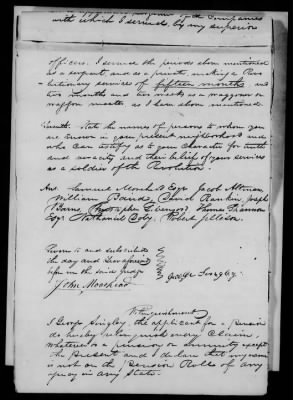 with which I served by my superior
officers. I served the periods above mentioned
as a sergeant, and as a private, making a Revo
lutionary services of fifteen months and
two months and two weeks as a waggoner or
waggon master as I have above mentioned.
State the names of persons to whom you
are known in your present neighborhood and
who can testify as to your character for truth
and veracity and their belief of your services
as a soldier of the Revolution.
Ans Samuel Esqr Jacob
William David Rankin, Joseph
Thomas
Esqr Nathaniel Robert
Sworn to and subscribed
the day and year aforesaid
before the said Judge
John Moorhead
George
Relinquishment
I George the applicant for a Pension
do hereby relinquish every claim,
whatever to a pension or annuity except
the Present and I declare that my name
is not on the Pension Rolls of any
agency in any State.